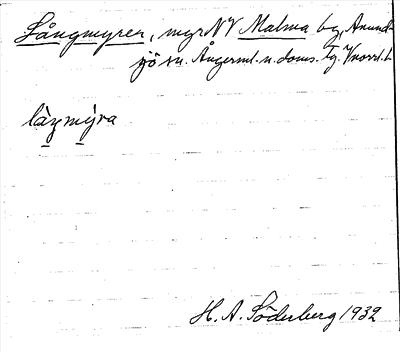 Långmyren, myr NV Malma by, Anund-
jö sn. Ångerml. n. doms. tg. Vnorrl. l.
låŋmy̆ra
H. A. Söderberg 1932